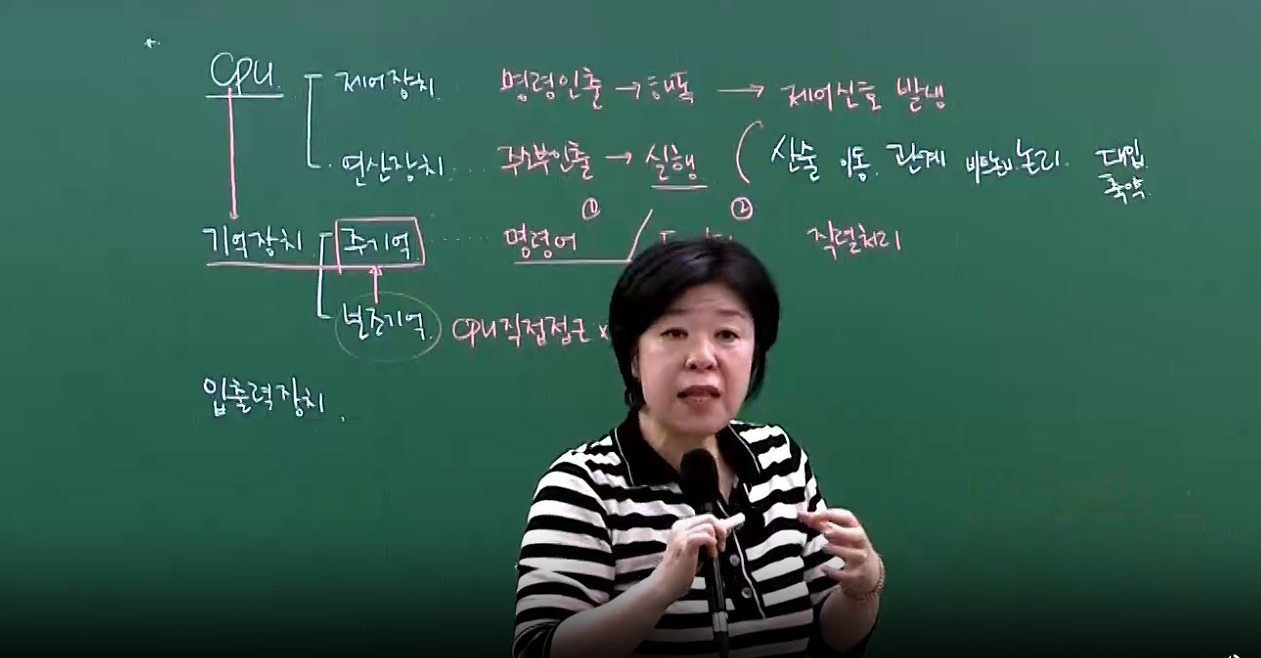 CPU 제어장치 명령인출 → 해독 → 제어신호 발생
연산장치 주소부인출 → 실행 ( 산술 이동 관계 비트논리 논리 대입
축약
① ②
기억장치 주기억 명령어 / 직렬처리
보조기억 CPU 직접접근 ×
입출력장치